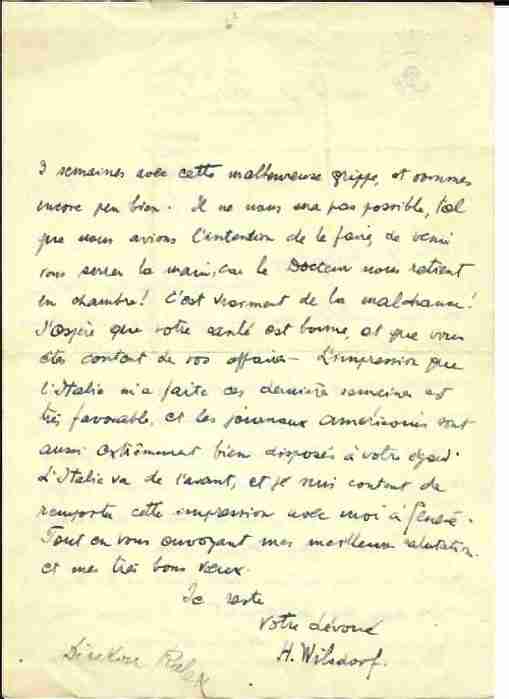 3 semaines avec cette malheureuse grippe, et sommes
encore peu bien. Il ne nous sera pas possible, tel
que nous avions l'intention de le faire, de venir
vous serrer la main, car le Docteur nous retient
en chambre! C'est vraiment de la malchance!
J'espère que votre santé est bonne, et que vous
êtes content de vos affaires - L'impression que
l'Italie m'a faite ces dernières semaines est
très favorable, et les journaux américains sont
aussi extrêmement bien disposés à votre égard.
L'Italie va de l'avant, et je suis content de
remporter cette impression avec moi à Genève.
Tout en vous envoyant mes meilleures salutations
et mes très bons vœux.
Je reste
Votre dévoué
H. Wilsdorf.
Direktor Rolex